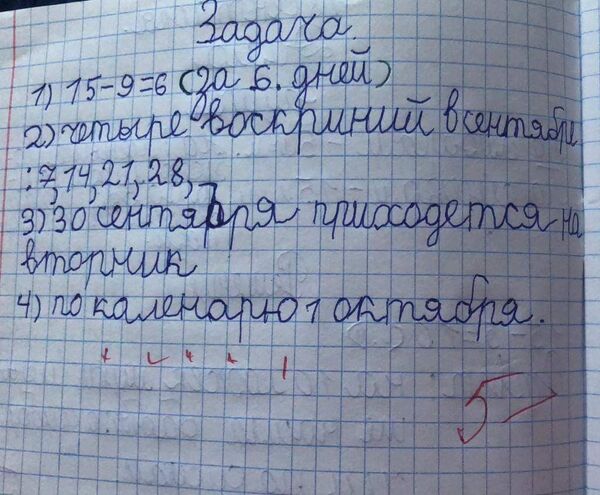 Задача.
1) 15-9=6 (за 6. дней)
2) четыре воскриний в сентябри
: 7, 14, 21, 28,
3) 30 сентября приходется на
вторник
4) по календарю 1 октября.
5-